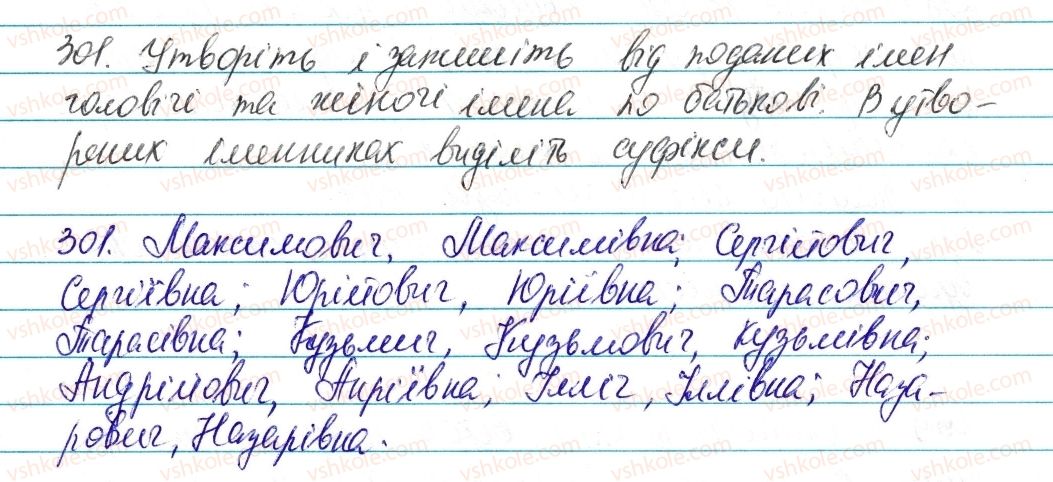 301. Утворіть і запишіть від поданих імен
чоловічі та жіночі імена по батькові. В утво-
рених іменниках виділіть суфікси.
301. Максимович, Максимівна; Сергійович,
Сергіївна; Юрійович, Юріївна; Тарасович,
Тарасівна; Кузьмич, Кузьмович, Кузьмівна;
Андрійович, Анріївна; Ілліч, Іллівна; Наза-
рович, Назарівна.